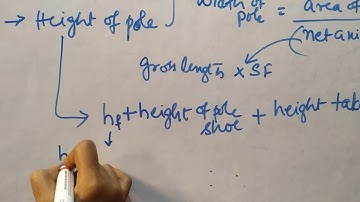 → Height of pole
width of pole = area of / net axi
gross length × SF
hf + height of pole shoe + height tak
h